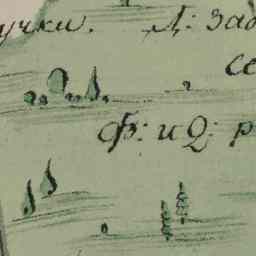 учки. Д: заб
се
Ф: и Q: р